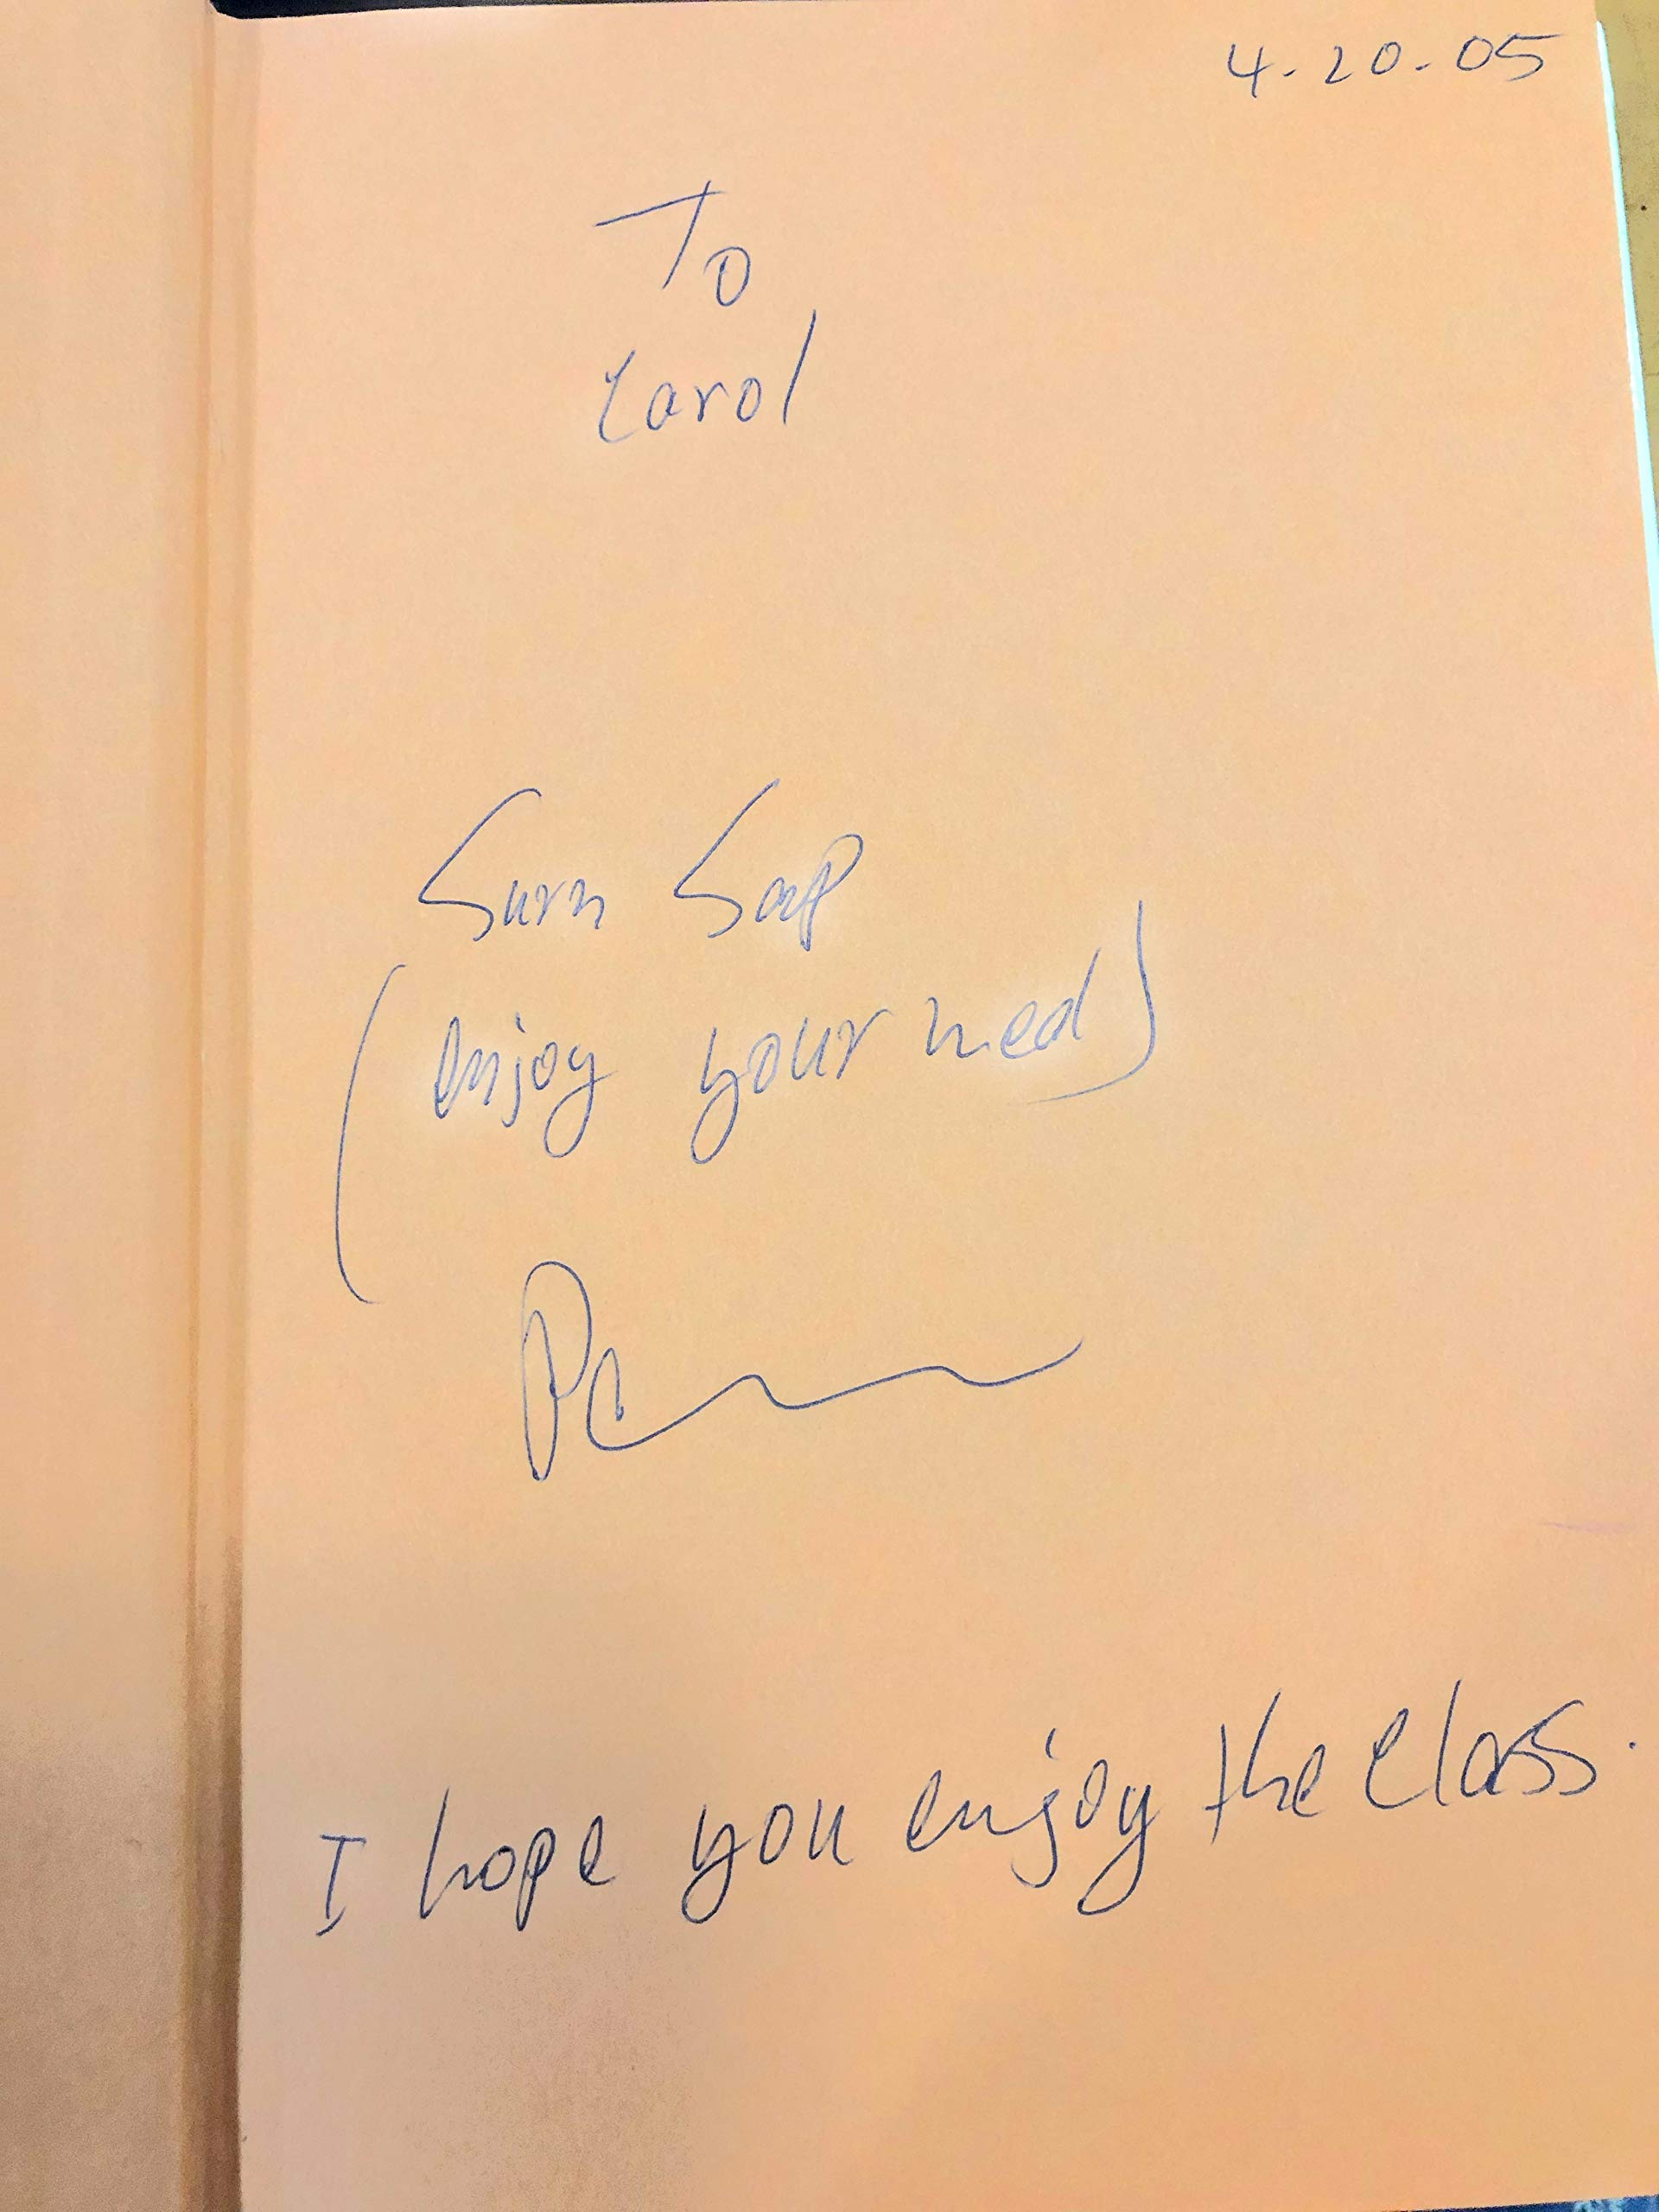 4-20-05
To
Carol
Surn Sap
(enjoy your meal)
I hope you enjoy the class.